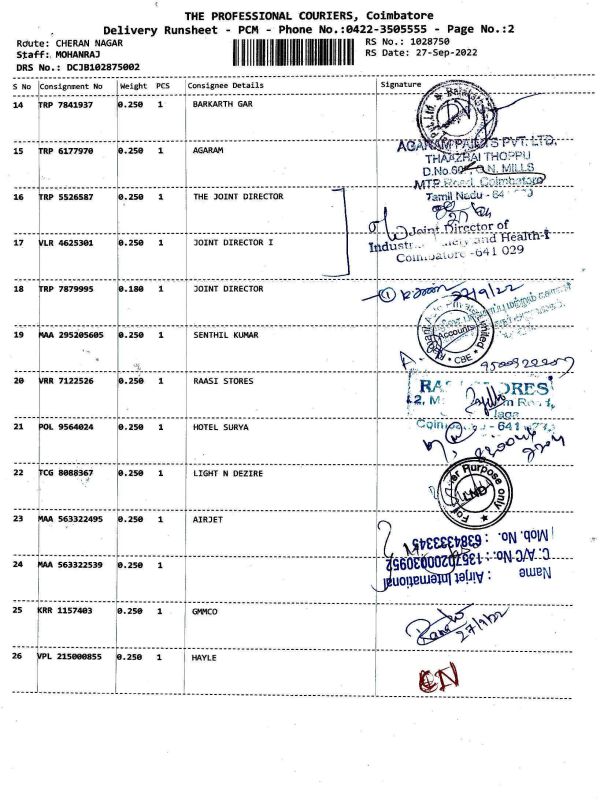 THE PROFESSIONAL COURIERS, Coimbatore
Delivery Runsheet - PCM - Phone No.:0422-3505555 - Page No.:2
Route: CHERAN NAGAR
RS No.: 1028750
Staff: MOHANRAJ
RS Date: 27-Sep-2022
DRS No.: DCJB102875002
S No Consignment No Weight PCS Consignee Details Signature
14 TRP 7841937 0.250 1 BARKARTH GAR
15 TRP 6177970 0.250 1 AGARAM
AGARAM PVT. LTD.
THAAZHAI THOPPU
D.No.60 MILLS
MTP Road, Coimbatore
16 TRP 5526587 0.250 1 THE JOINT DIRECTOR
Tamil Nadu - 641
17 VLR 4625301 0.250 1 JOINT DIRECTOR I
Joint Director of
and Health-I
Coimbatore -641 029
18 TRP 7879995 0.180 1 JOINT DIRECTOR
27/9/22
19 MAA 295205605 0.250 1 SENTHIL KUMAR
Accounts
CBE
20 VRR 7122526 0.250 1 RAASI STORES
21 POL 9564024 0.250 1 HOTEL SURYA
22 TCG 8088367 0.250 1 LIGHT N DEZIRE
Purpose only
LND
23 MAA 563322495 0.250 1 AIRJET
Mob. No. : 6384333345
C. A/C No. : 135702000030952
Name : Airjet International
24 MAA 563322539 0.250 1
25 KRR 1157403 0.250 1 GMMCO
27/9/22
26 VPL 215000855 0.250 1 HAYLE
CN